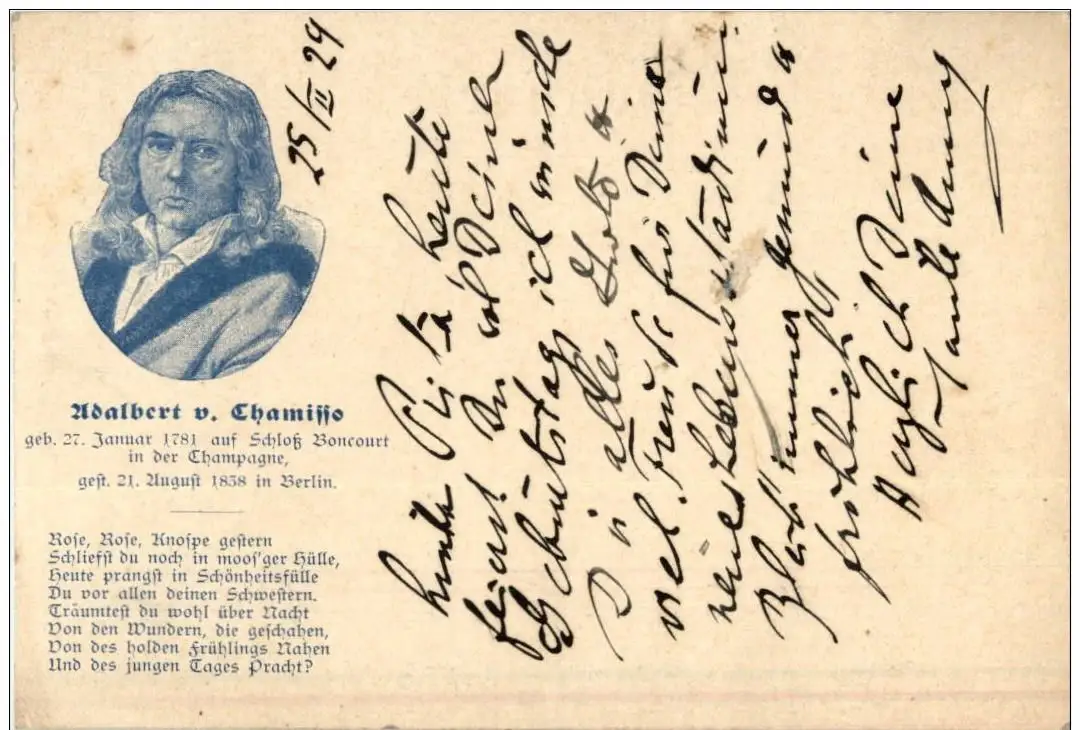 Adalbert v. Chamisso
geb. 27. Januar 1781 auf Schloß Boncourt
in der Champagne,
gest. 21. August 1838 in Berlin.
Rose, Rose, Knospe gestern
Schliefst du noch in moos'ger Hülle,
Heute prangst in Schönheitsfülle
Du vor allen deinen Schwestern.
Träumtest du wohl über Nacht
Von den Wundern, die geschahen,
Von des holden Frühlings Nahen
Und des jungen Tages Pracht?
25/II 29
heute
feierst Du Deinen
Geburtstag ich winde
alles
viel Freude für Deine
neues Lebens
Bleib immer gesund u
fröhlich
Herzlich Deine
Tante Anny